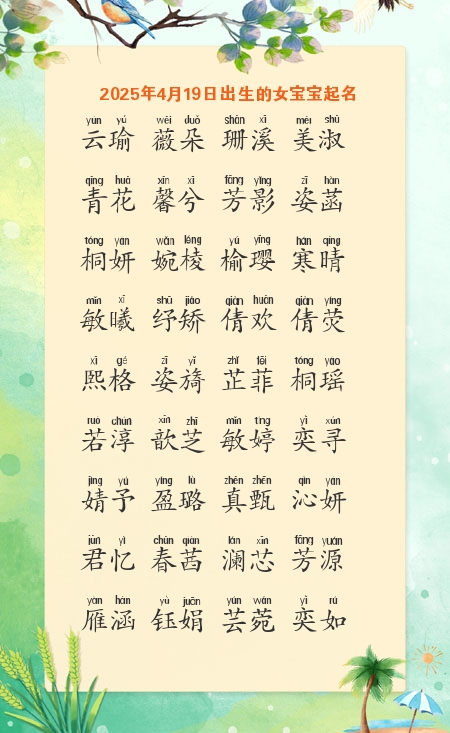 2025年4月19日出生的女宝宝起名
yún yú wēi duǒ shān xī měi shū
云瑜 薇朵 珊溪 美淑
qīng huā xīn xī fāng yǐng zī hàn
青花 馨兮 芳影 姿菡
tóng yán wǎn léng yú yīng hán qíng
桐妍 婉棱 榆璎 寒晴
mǐn xī shū jiǎo qiàn huān qiàn yíng
敏曦 纾矫 倩欢 倩荧
xī gé zī yǐ zhǐ fēi tóng yáo
熙格 姿旖 芷菲 桐瑶
ruò chún xīn zhī mǐn tíng yì xún
若淳 歆芝 敏婷 奕寻
jìng yú yíng lù zhēn zhēn qìn yán
婧予 盈璐 真甄 沁妍
jūn yì chūn qiàn lán xīn fāng yuán
君忆 春茜 澜芯 芳源
yàn hán yù juān yún wǎn yì rú
雁涵 钰娟 芸菀 奕如